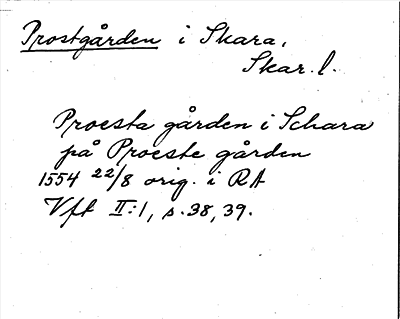 Prostgården i Skara,
Skar. l.
Proesta gården i Schara
på Proeste gården
1554 22/8 orig. i RA
Vft II:1, s. 38, 39.